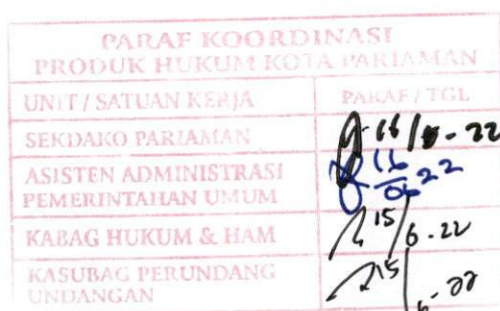 PARAF KOORDINASI
PRODUK HUKUM KOTA PARIAMAN
UNIT / SATUAN KERJA PARAF / TGL
SEKDAKO PARIAMAN 16/6-22
ASISTEN ADMINISTRASI
PEMERINTAHAN UMUM 16/06 22
KABAG HUKUM & HAM 15/6-22
KASUBAG PERUNDANG
UNDANGAN 15/6-22